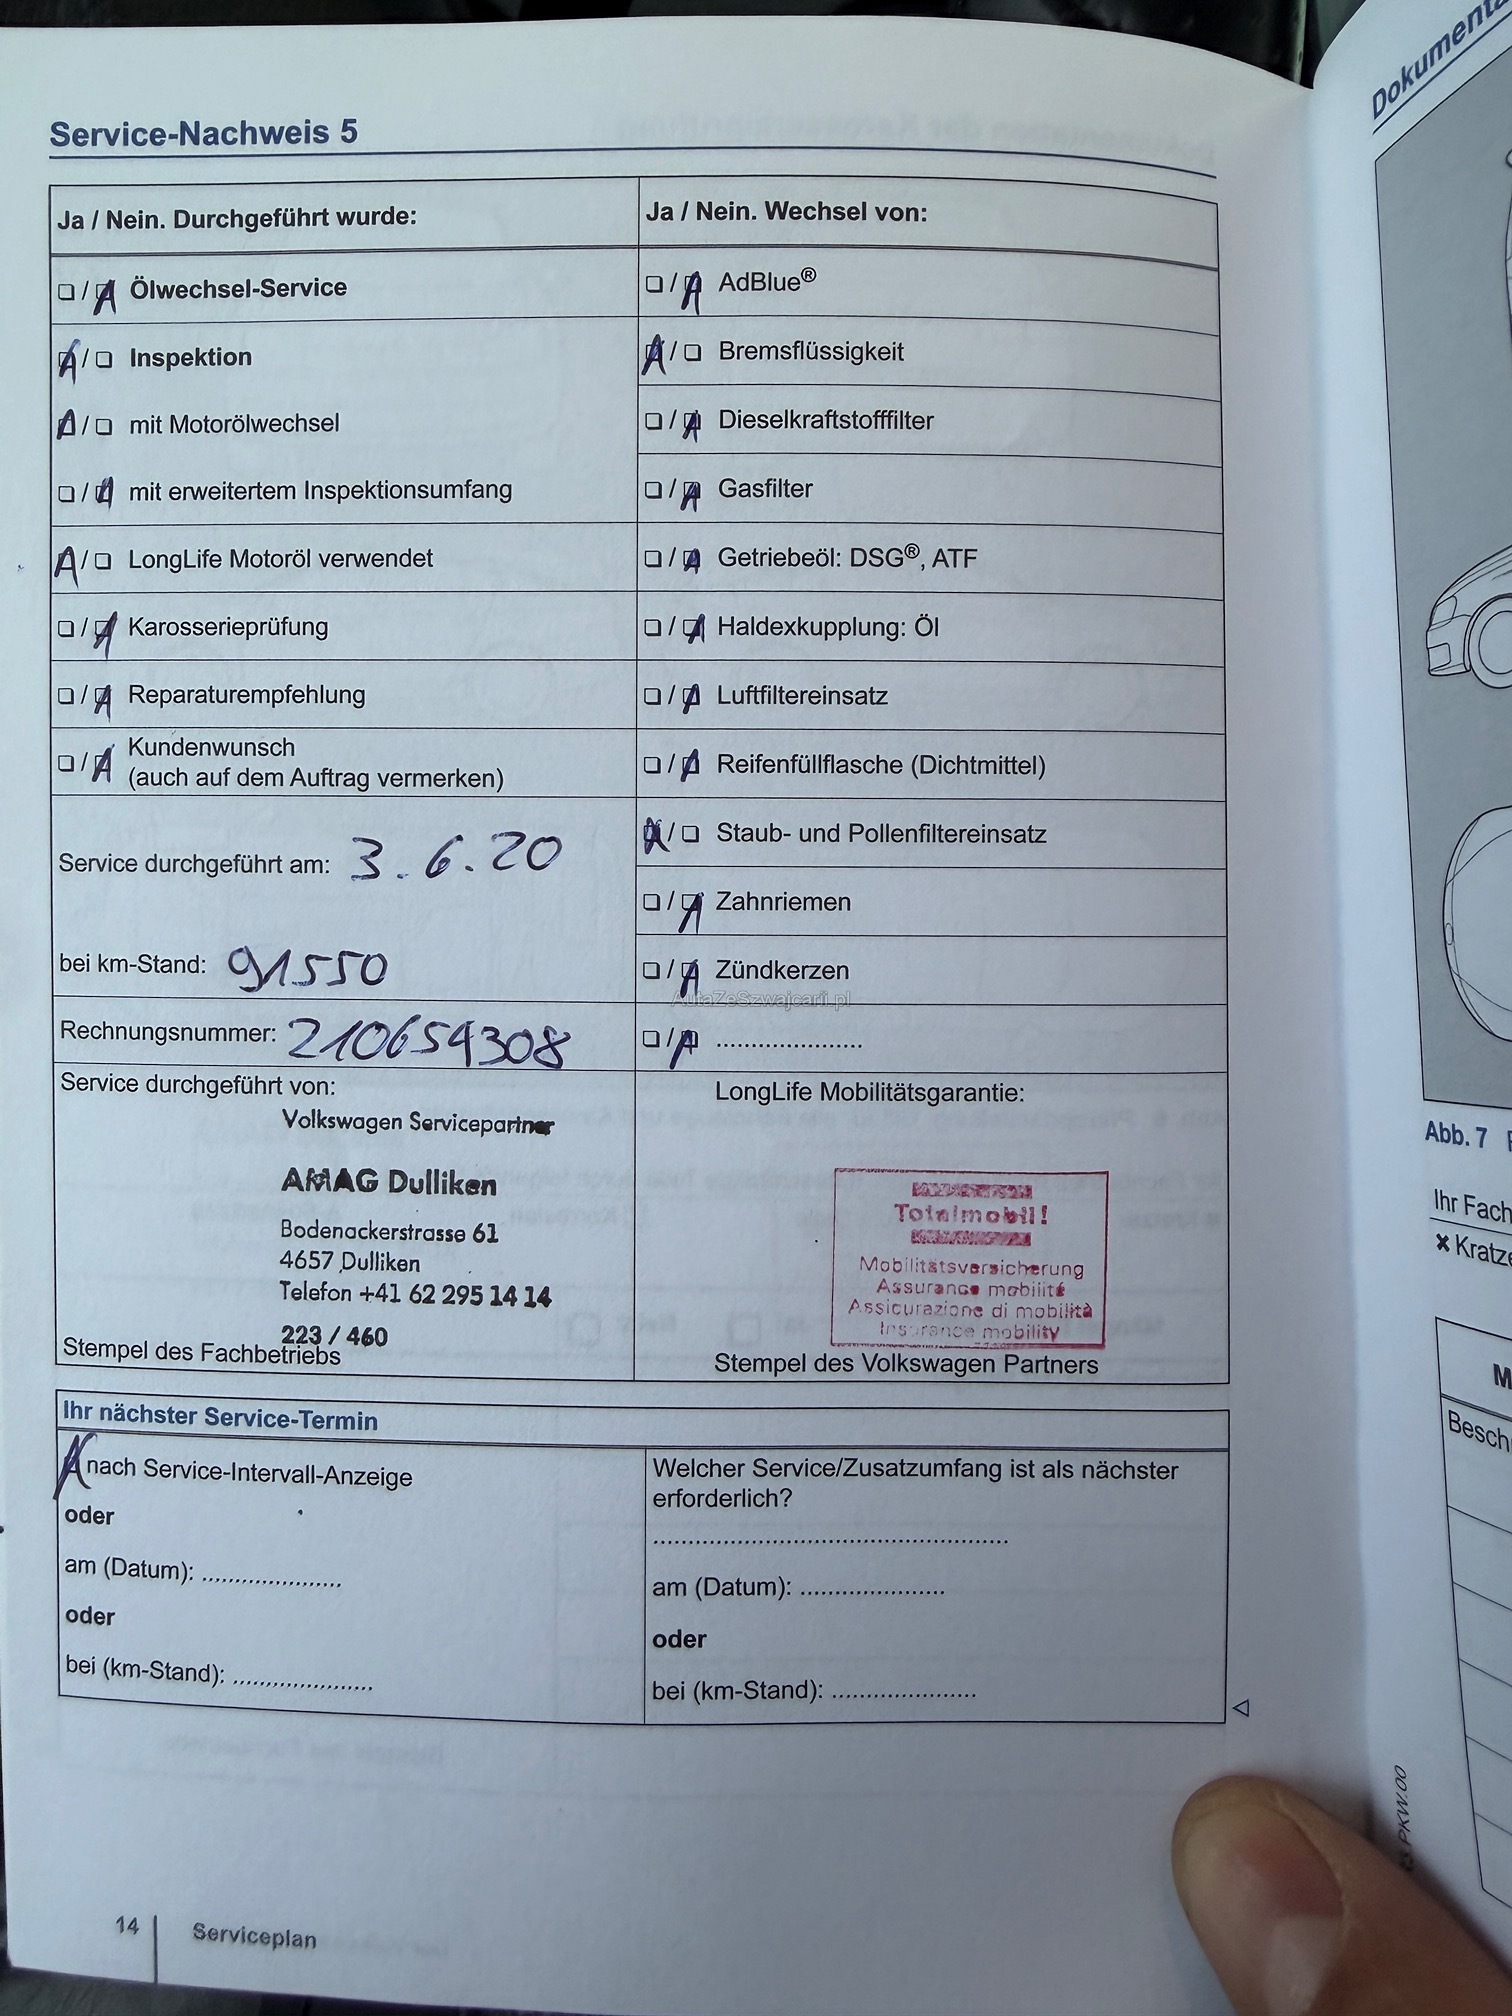 Service-Nachweis 5
Ja / Nein. Durchgeführt wurde:
☐ / ☒ Ölwechsel-Service
☒ / ☐ Inspektion
☒ / ☐ mit Motorölwechsel
☐ / ☒ mit erweitertem Inspektionsumfang
☒ / ☐ LongLife Motoröl verwendet
☐ / ☒ Karosserieprüfung
☐ / ☒ Reparaturempfehlung
☐ / ☒ Kundenwunsch
(auch auf dem Auftrag vermerken)
Service durchgeführt am: 3.6.20
bei km-Stand: 91550
Rechnungsnummer: 210654308
Service durchgeführt von:
Volkswagen Servicepartner
AMAG Dulliken
Bodenackerstrasse 61
4657 Dulliken
Telefon +41 62 295 14 14
223 / 460
Stempel des Fachbetriebs
Ja / Nein. Wechsel von:
☐ / ☒ AdBlue®
☒ / ☐ Bremsflüssigkeit
☐ / ☒ Dieselkraftstofffilter
☐ / ☒ Gasfilter
☐ / ☒ Getriebeöl: DSG®, ATF
☐ / ☒ Haldexkupplung: Öl
☐ / ☒ Luftfiltereinsatz
☐ / ☒ Reifenfüllflasche (Dichtmittel)
☒ / ☐ Staub- und Pollenfiltereinsatz
☐ / ☒ Zahnriemen
☐ / ☒ Zündkerzen
AutaZeSzwajcarii.pl
☐ / ☒ .....................
LongLife Mobilitätsgarantie:
Totalmobil!
Mobilitätsversicherung
Assurance mobilité
Assicurazione di mobilità
Insurance mobility
Stempel des Volkswagen Partners
Ihr nächster Service-Termin
☒ nach Service-Intervall-Anzeige
oder
am (Datum): ....................
oder
bei (km-Stand): ....................
Welcher Service/Zusatzumfang ist als nächster
erforderlich?
...................................................
am (Datum): .....................
oder
bei (km-Stand): .....................
14
Serviceplan
Abb. 7
Ihr Fach
PKW.00